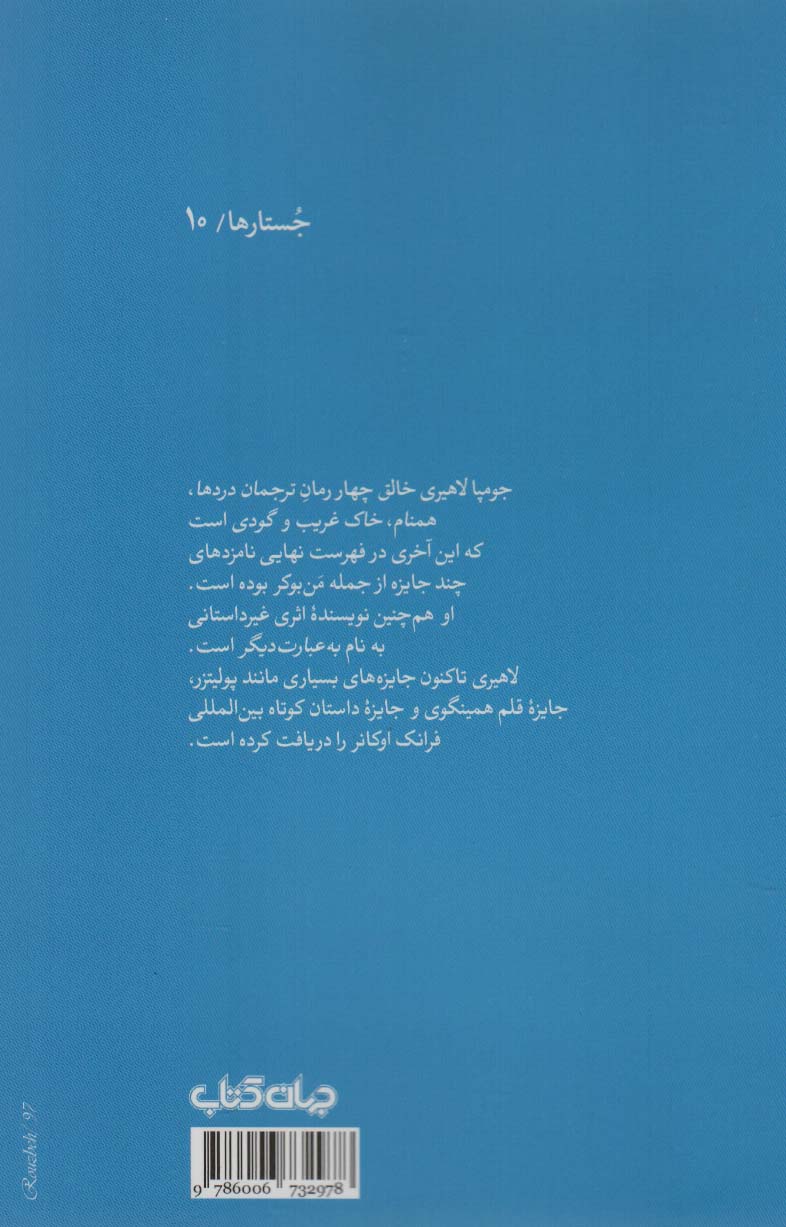 جُستارها/ ۱۰
جومپا لاهیری خالق چهار رمانِ ترجمان دردها،
همنام، خاک غریب و گودی است
که این آخری در فهرست نهایی نامزدهای
چند جایزه از جمله مَن‌بوکر بوده است.
او هم‌چنین نویسندهٔ اثری غیرداستانی
به نام به‌عبارت‌دیگر است.
لاهیری تاکنون جایزه‌های بسیاری مانند پولیتزر،
جایزهٔ قلم همینگوی و جایزهٔ داستان کوتاه بین‌المللی
فرانک اوکانر را دریافت کرده است.
جهان کتاب
9 786006 732978
Rouzbeh' 97